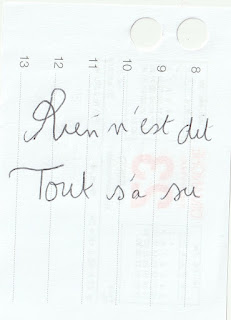 8
9
10
11
12
13
Rien n'est dit
Tout s'a su